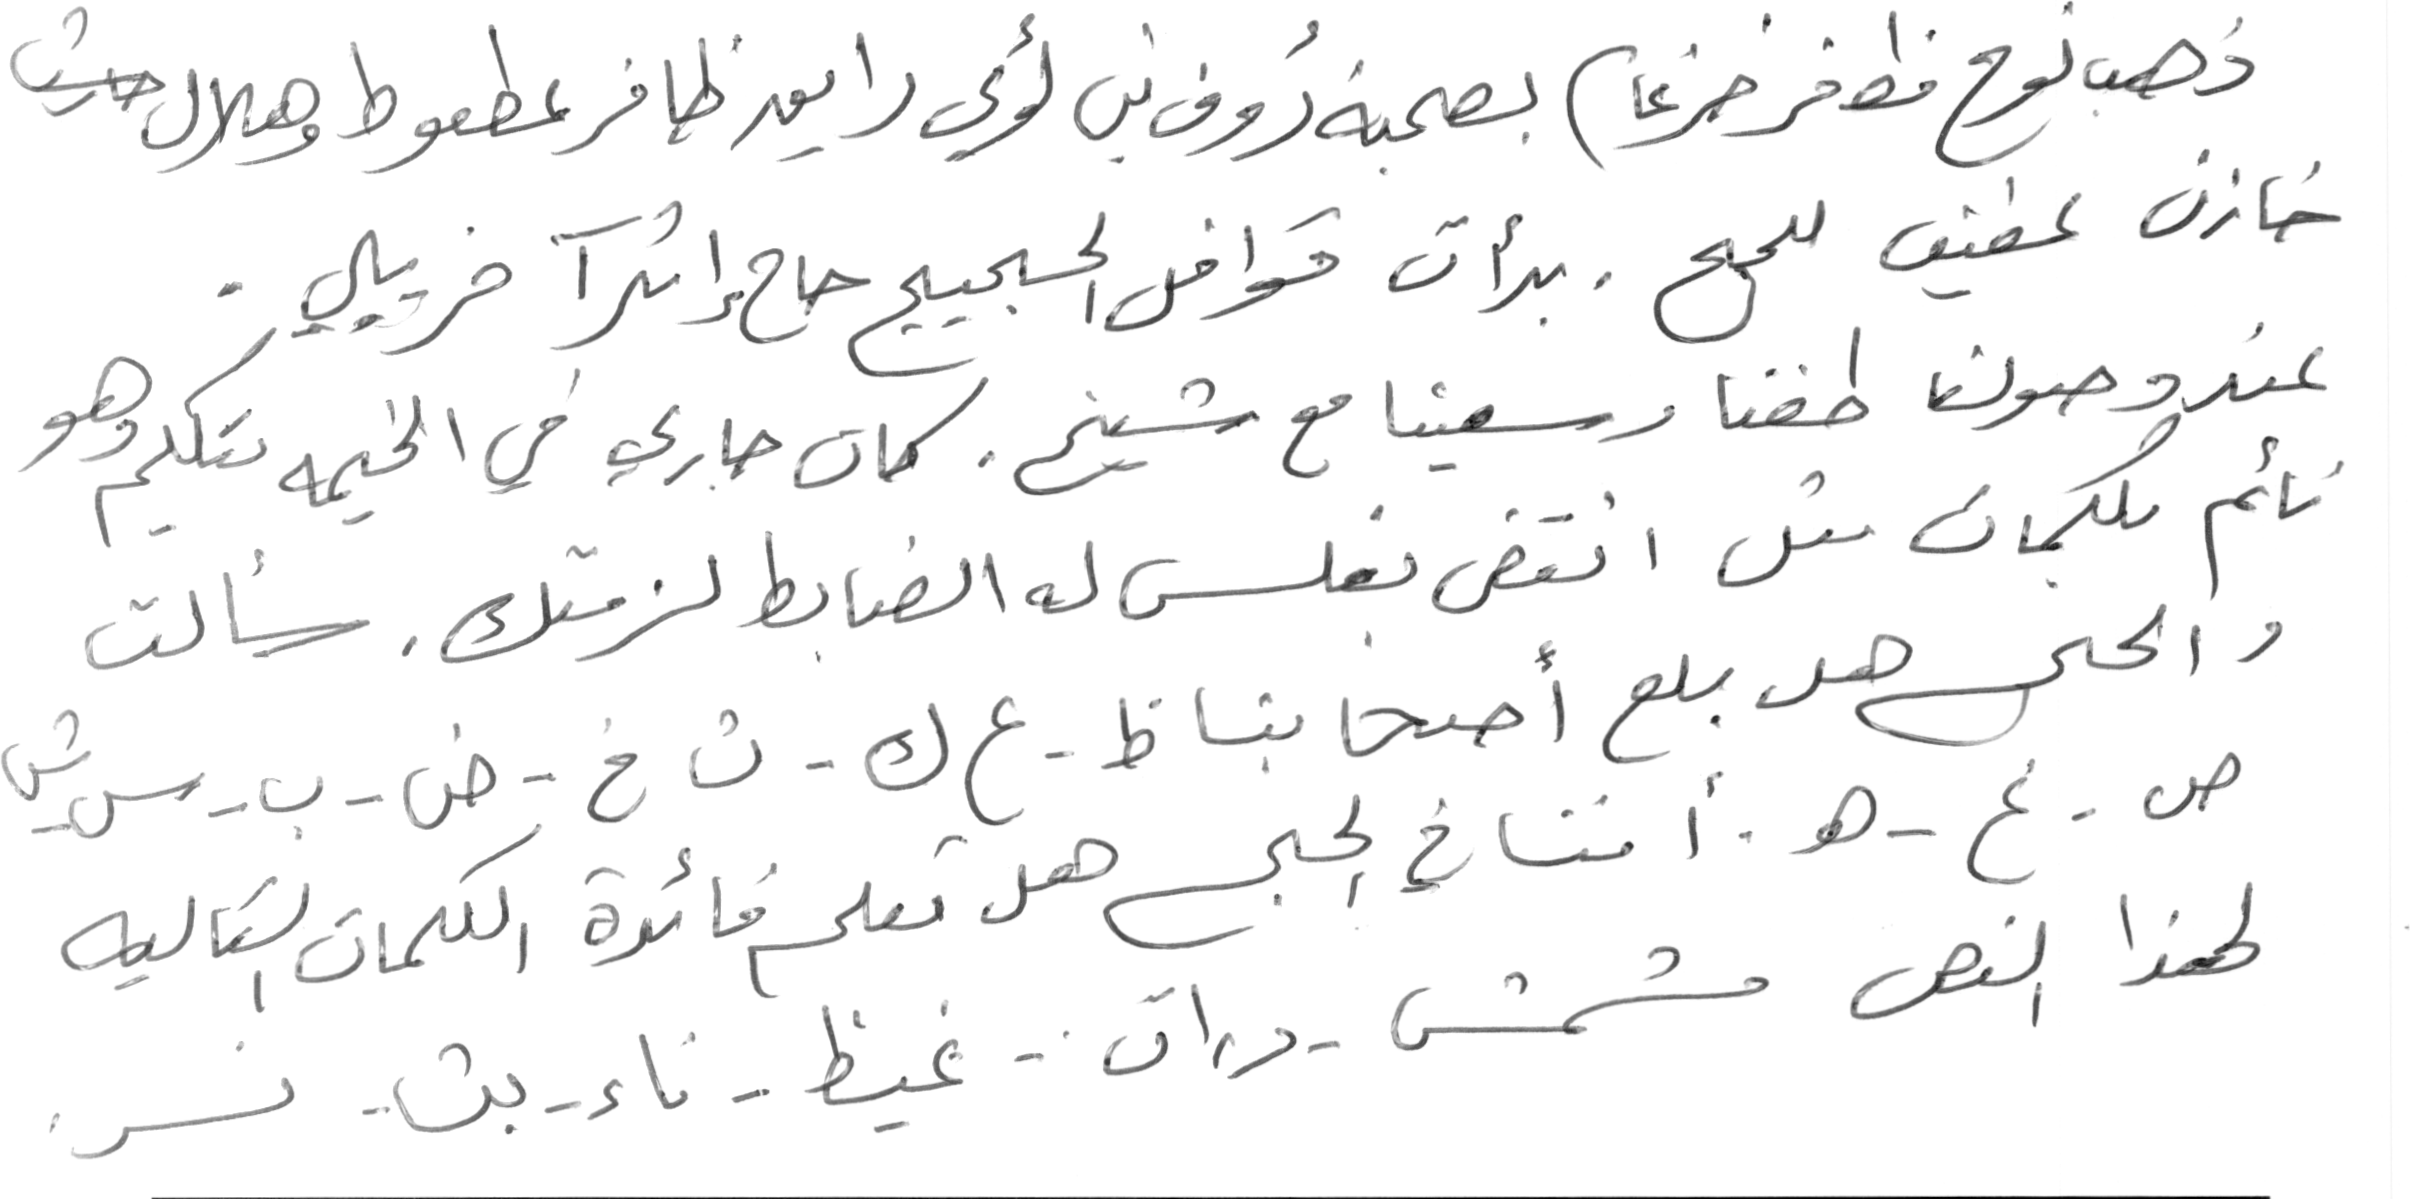 ذهب نوح مظفر ضرغام بصحبة رؤوف بن لؤي رايعد ظافر عطعوط وهلال حارث
خازن عفيف للحج . بدأت قوافل الحجيج حاج إثرآ خر يلي .
عند وصولنا طفنا وسعينا مع شيخ . كان جاري في الخيمه يتكلم وهو
نائم بكلمات مثل انتفض نغلس له الضابط لزمتك . سألت
والحجي هل بلع أضخا بنساظ - ع ك - ث خ - ض - ب - س ش
ص - غ - ه . أ فتنا في الحجى هل تعلم فائدة الكلمات التاليه
لهذا النص مشمش - دراق - غيظ - ناء - بث - نسر .